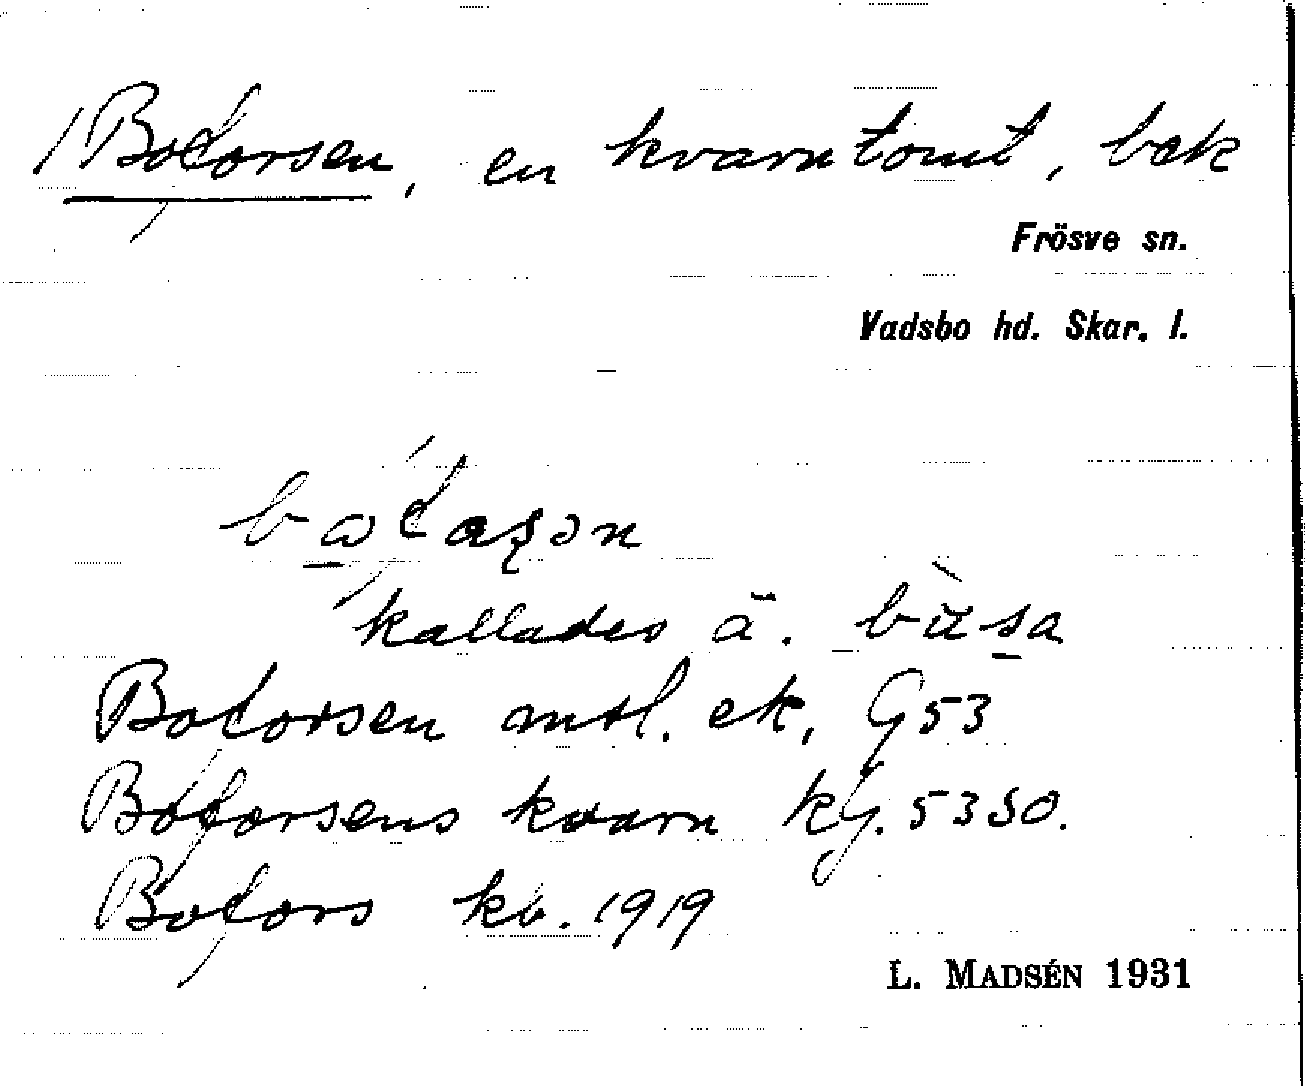 /Boforsen, en kvarntomt, bek
Frösve sn.
Vadsbo hd. Skar. l.
kallades ä. bùsa
Boforsen mtl. ek. G53
Boforsens kvarn kg. 53SO.
Bofors kb. 1919
L. MADSÉN 1931